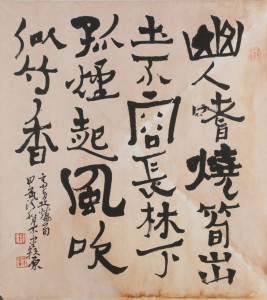 幽人嗜燒筍出
土不容長林下
孤煙起風吹
似竹香